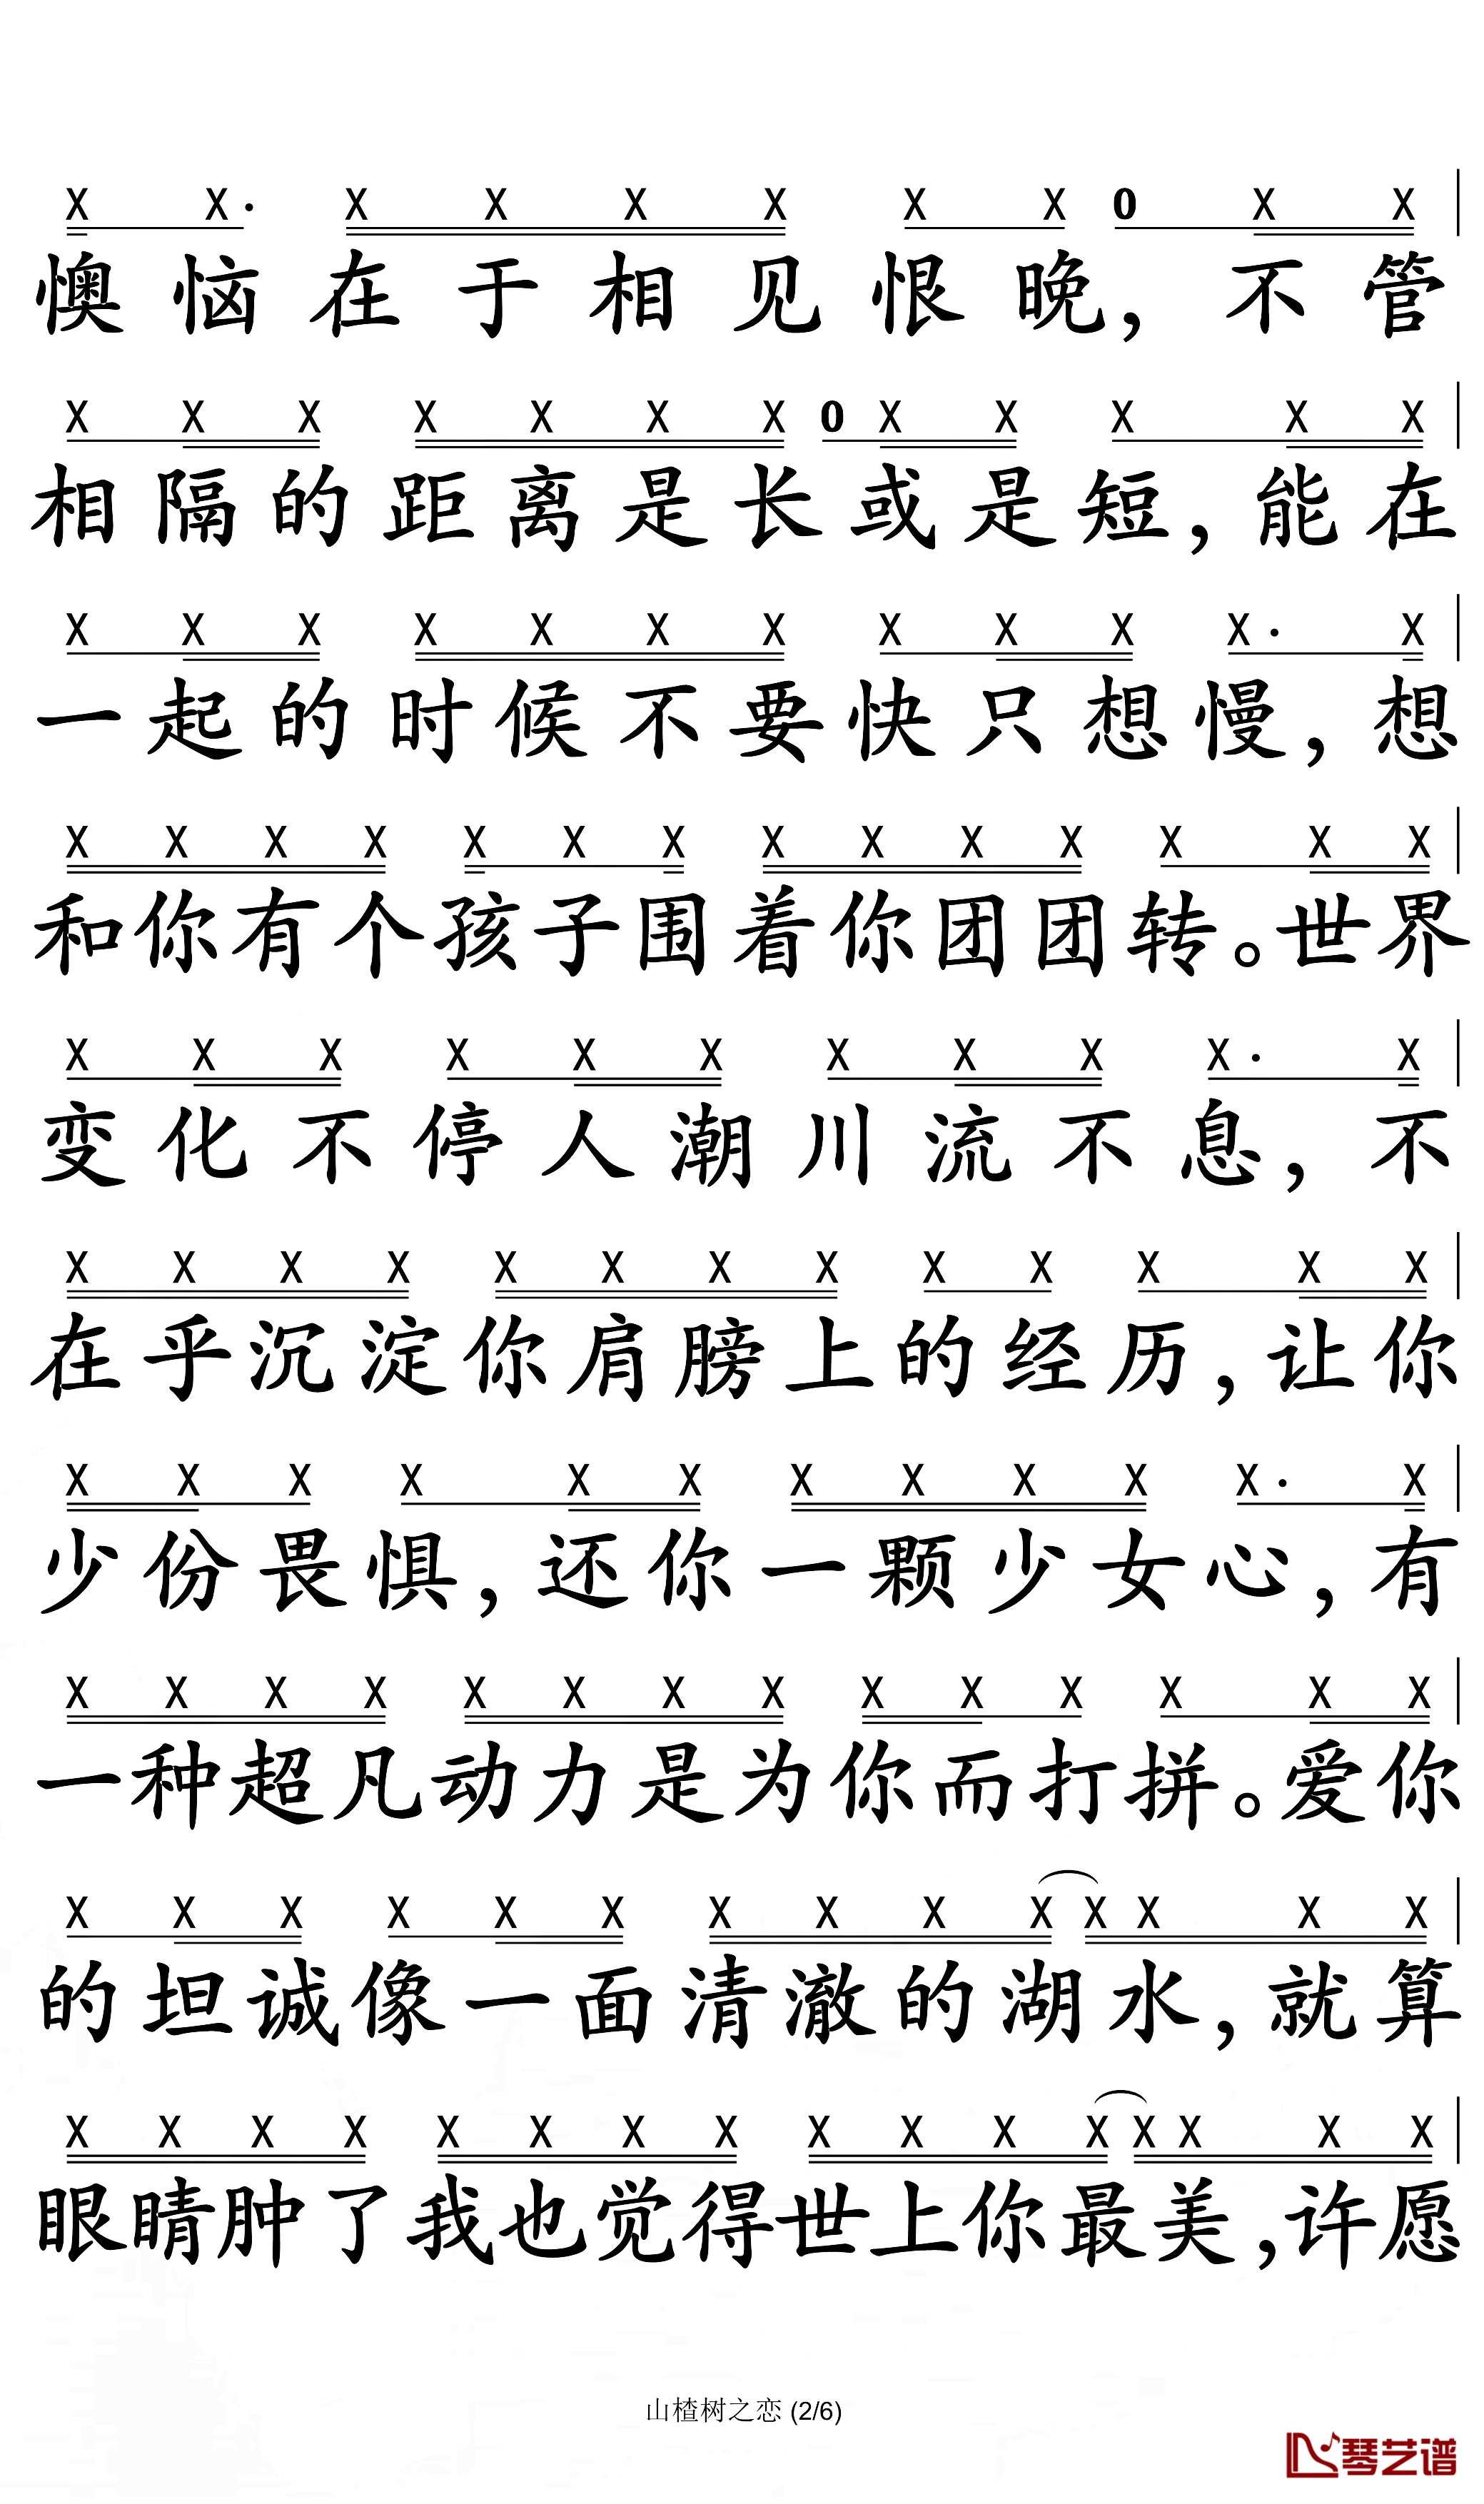 X X· X X X X X X 0 X X
懊恼在于相见恨晚，不管
X X X X X X X 0 X X X X X
相隔的距离是长或是短，能在
X X X X X X X X X X X· X
一起的时候不要快只想慢，想
X X X X X X X X X X X X X X
和你有个孩子围着你团团转。世界
X X X X X X X X X X· X
变化不停人潮川流不息，不
X X X X X X X X X X X X X
在乎沉淀你肩膀上的经历，让你
X X X X X X X X X X X· X
少份畏惧，还你一颗少女心，有
X X X X X X X X X X X X X X
一种超凡动力是为你而打拼。爱你
X X X X X X X X X X X X X X
的坦诚像一面清澈的湖水，就算
X X X X X X X X X X X X X X X X
眼睛肿了我也觉得世上你最美，许愿
山楂树之恋 (2/6)
琴艺谱